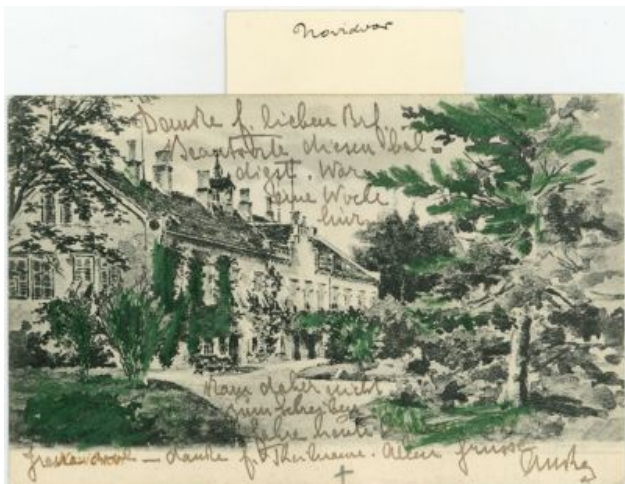 Novidvor
Danke f. lieben Brf.
Beantworte diesen bal-
digst. War
eine Woche
kam daher nicht
zum Schreiben
heute
— danke f. Theilname. Allen Grüsse